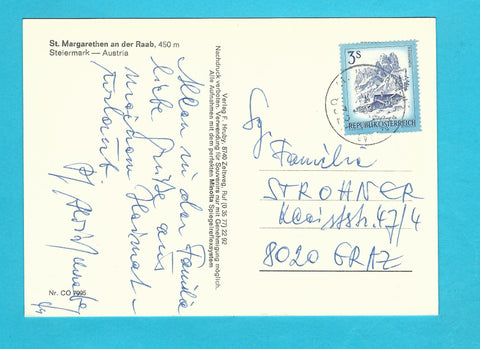 St. Margarethen an der Raab, 450 m
Steiermark — Austria
Allen in der Familie
liebe Grüße aus
meinem Heimat-
urlaub
Nr. CO 7995
Verlag F. Heuby, 8740 Zeltweg, Ruf (0 35 77) 22 92
Nachdruck verboten. Verwendung für Souvenirs nur mit Genehmigung möglich.
Alle Aufnahmen mit dem perfekten Minolta Spiegelreflexsystem
3 S
REPUBLIK ÖSTERREICH
Familie
STROHNER
Kleiststr. 47/4
8020 GRAZ